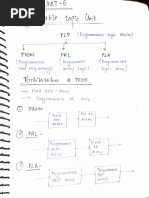 UNIT-6
Programmable Logic Unit
PLD (Programmable Logic Device)
PROM
PAL
PLA
(Programmable
(Programmable
(Programmable
Read only memory)
Array Logic)
Logic Array)
→ Fixed AND - Array
→ Programmable OR array
① PROM
Fixed
AND
② PAL
Programmable
AND
array
Fixed
OR
array
③ PLA
Programmable
AND
array
Programmable
OR
array